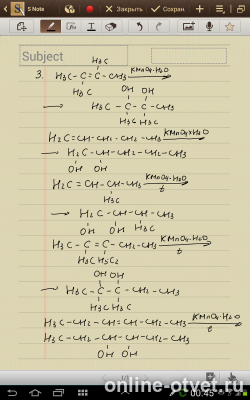 S Note
Закрыть
Сохран.
Subject
3.
H₃C
H₃C-C=C-CH₃ KMnO₄·H₂O
H₃C
OH OH
→ H₃C-C-C-CH₃
H₃C H₃C
H₂C=CH-CH₂-CH₂-CH₃ KMnO₄·H₂O
→ H₂C-CH-CH₂-CH₂-CH₃
OH OH
H₂C=CH-CH-CH₃ KMnO₄·H₂O
t
→ H₂C-CH-CH-CH₃
OH OH H₃C
H₃C-C=C-CH₂-CH₃ KMnO₄·H₂O
t
H₃C H₅C₂
OH OH
→ H₃C-C-C-CH₂-CH₃
H₃C H₃C
H₃C-CH₂-CH=CH-CH₂-CH₃ KMnO₄·H₂O
t
H₃C-CH₂-CH-CH-CH₂-CH₃
OH OH
online-otvet.ru
00:45